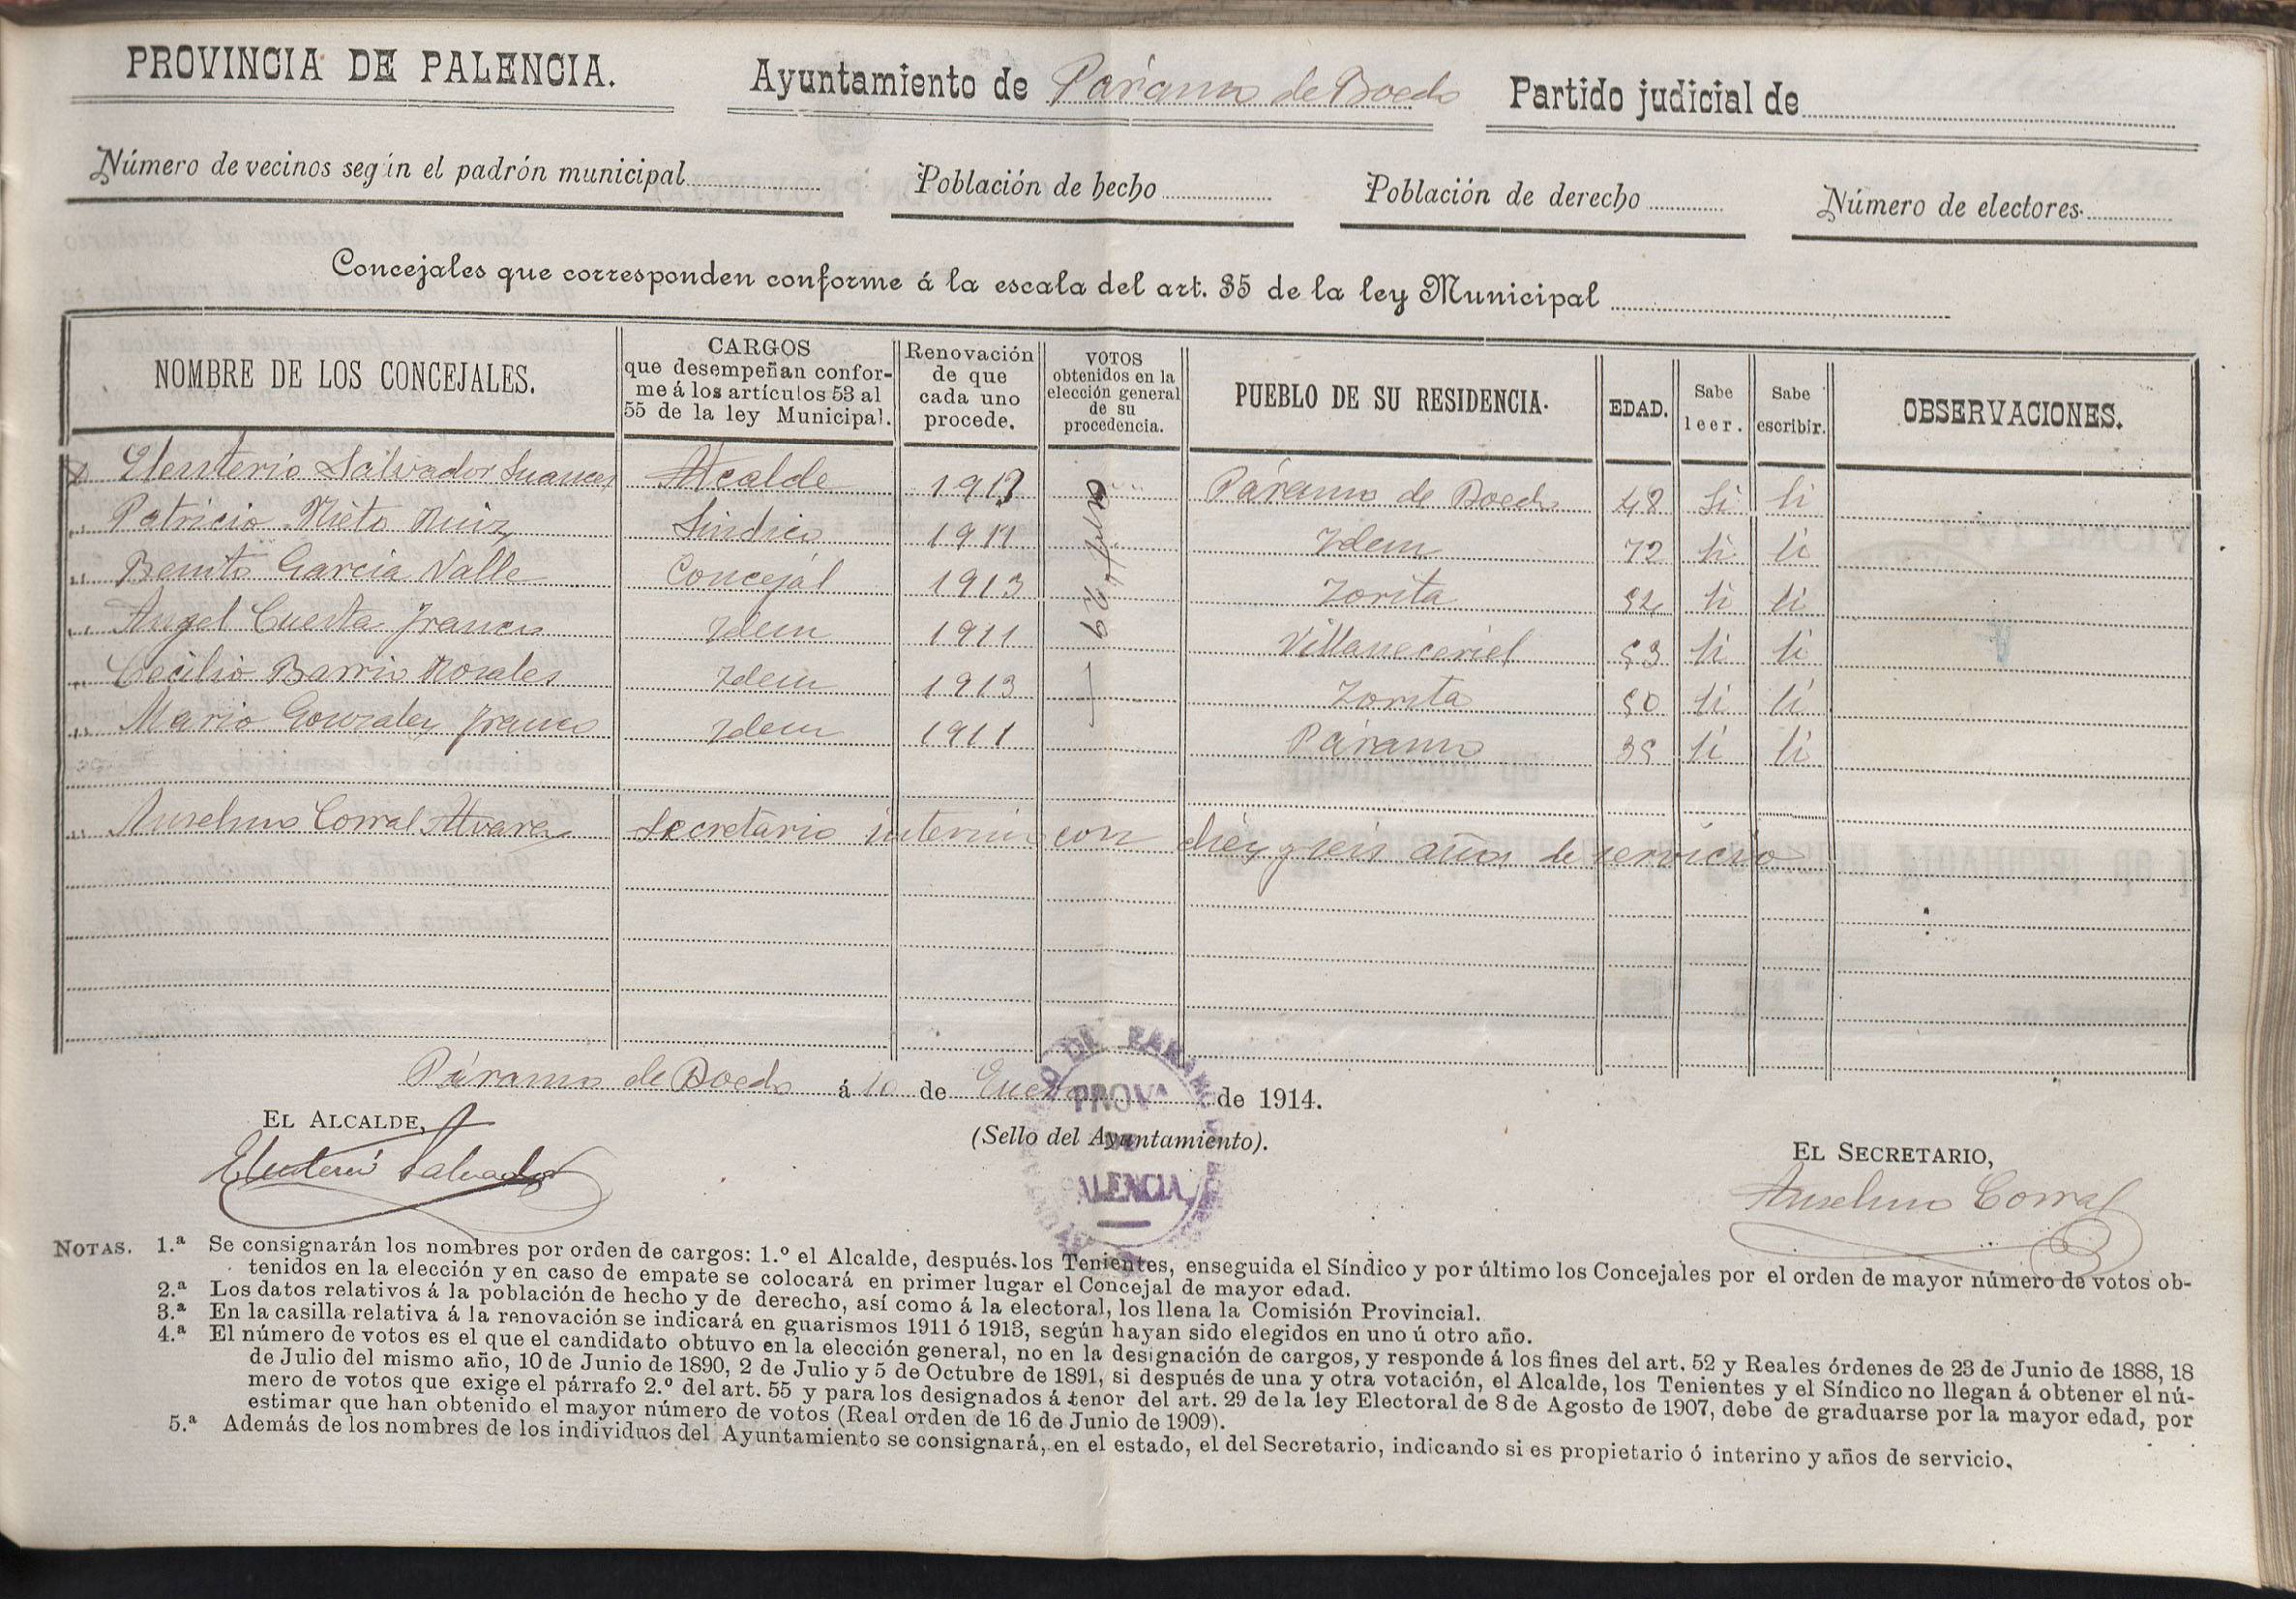 PROVINCIA DE PALENCIA. Ayuntamiento de Páramo de Boedo Partido judicial de
Número de vecinos según el padrón municipal Población de hecho Población de derecho Número de electores
Concejales que corresponden conforme á la escala del art. 35 de la ley Municipal
NOMBRE DE LOS CONCEJALES. CARGOS que desempeñan conforme á los artículos 53 al 55 de la ley Municipal. Renovación de que cada uno procede. VOTOS obtenidos en la elección general de su procedencia. PUEBLO DE SU RESIDENCIA. EDAD. Sabe leer. Sabe escribir. OBSERVACIONES.
D. Eleuterio Salvador Suances Alcalde 1913 Páramo de Boedo 48 Si Si
" Patricio Nieto Ruiz Síndico 1911 Idem 72 si si
" Benito Garcia Valle Concejál 1913 Zorita 52 si si
" Angel Cuesta Franco Idem 1911 Villaneceriel 53 si si
" Cecilio Barrio Morales Idem 1913 Zorita 50 si si
" Mario Gonzalez Franco Idem 1911 Páramo 35 si si
" Anselmo Corral Alvarez Secretario interino con diez y seis años de servicio
Páramo de Boedo á 10 de Enero de 1914.
EL ALCALDE,
Eleuterio Salvador
(Sello del Ayuntamiento).
DE PARAMO
PROVA
DE
PALENCIA
EL SECRETARIO,
Anselmo Corral
NOTAS. 1.ª Se consignarán los nombres por orden de cargos: 1.º el Alcalde, después los Tenientes, enseguida el Síndico y por último los Concejales por el orden de mayor número de votos ob-
tenidos en la elección y en caso de empate se colocará en primer lugar el Concejal de mayor edad.
2.ª Los datos relativos á la población de hecho y de derecho, así como á la electoral, los llena la Comisión Provincial.
3.ª En la casilla relativa á la renovación se indicará en guarismos 1911 ó 1913, según hayan sido elegidos en uno ú otro año.
4.ª El número de votos es el que el candidato obtuvo en la elección general, no en la designación de cargos, y responde á los fines del art. 52 y Reales órdenes de 23 de Junio de 1888, 18
de Julio del mismo año, 10 de Junio de 1890, 2 de Julio y 5 de Octubre de 1891, si después de una y otra votación, el Alcalde, los Tenientes y el Síndico no llegan á obtener el nú-
mero de votos que exige el párrafo 2.º del art. 55 y para los designados á tenor del art. 29 de la ley Electoral de 8 de Agosto de 1907, debe de graduarse por la mayor edad, por
estimar que han obtenido el mayor número de votos (Real orden de 16 de Junio de 1909).
5.ª Además de los nombres de los individuos del Ayuntamiento se consignará, en el estado, el del Secretario, indicando si es propietario ó interino y años de servicio.